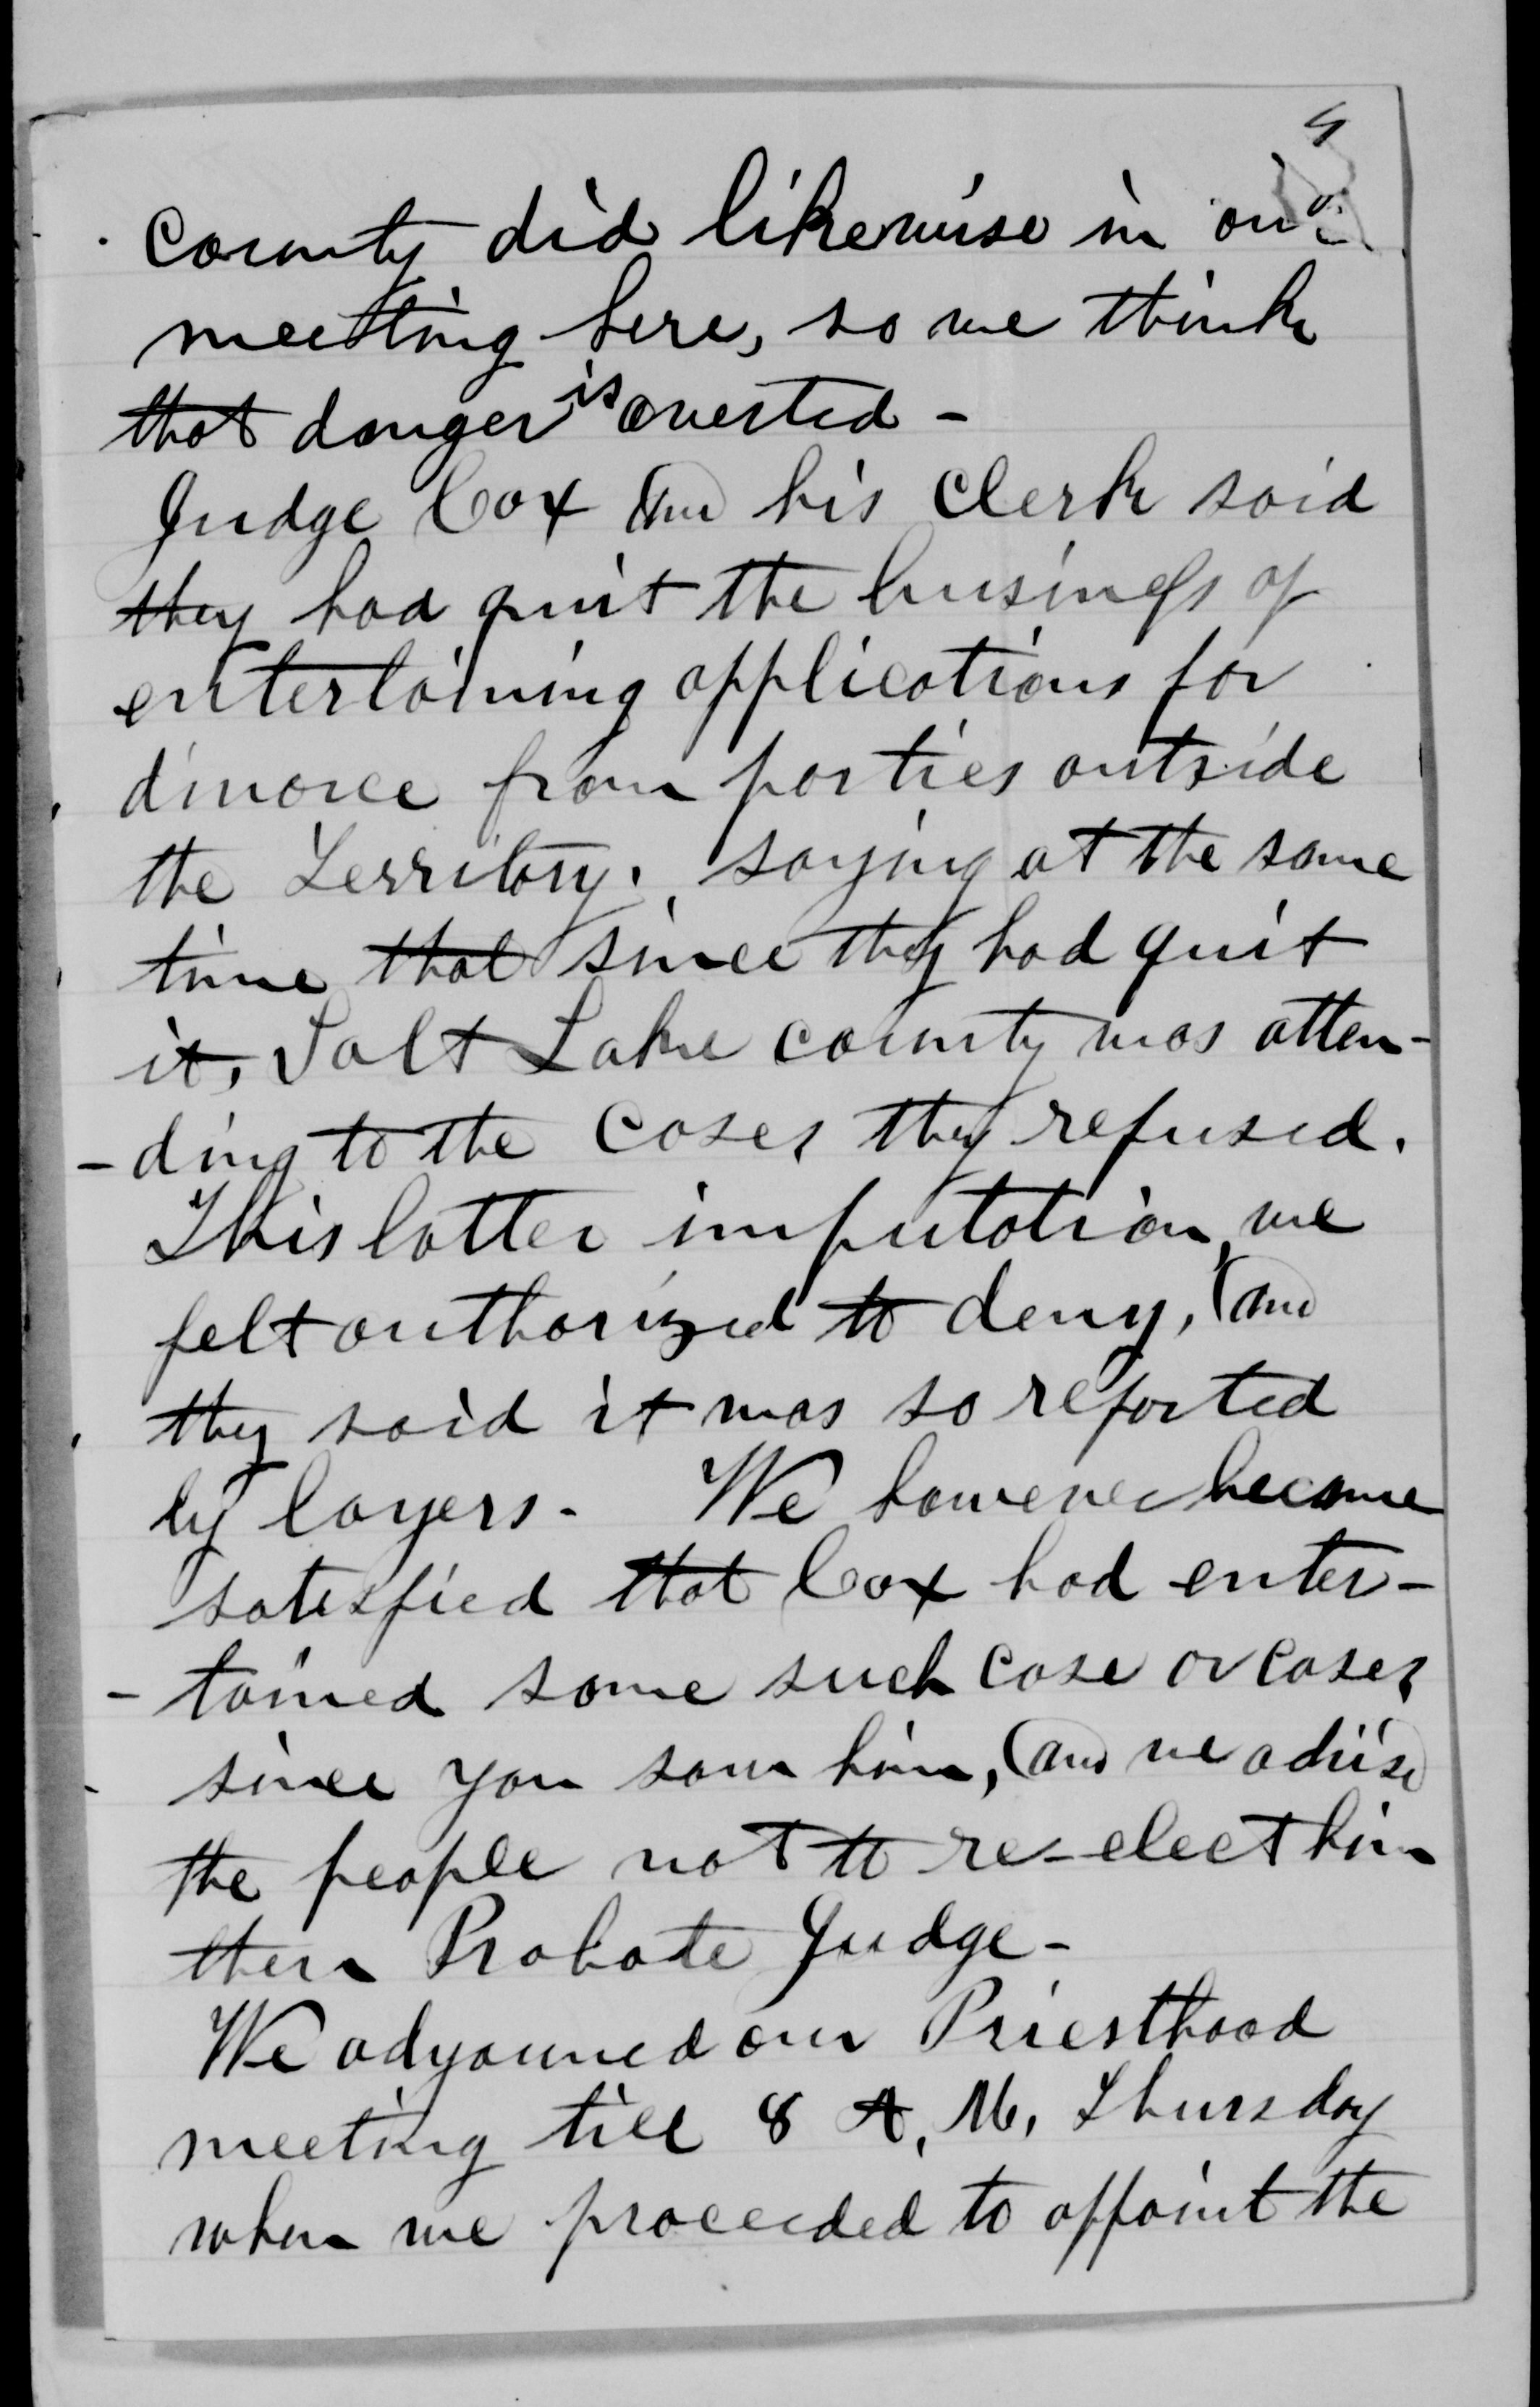 4
county did likewise in our
meeting here, so we think
that danger is averted -
Judge Cox and his clerk said
they had quit the business of
entertaining applications for
divorce from parties outside
the Territory. saying at the same
time that since they had quit
it, Salt Lake county was atten-
-ding to the cases they refused.
This latter imputation, we
felt authorized to deny, and
they said it was so reported
by layers - We however became
satisfied that Cox had enter-
-tained some such case or cases
since you saw him, and we advise
the people not to re-elect him
then Probate Judge -
We adyouned our Priesthood
meeting till 8 A. M. Thursday
when we proceeded to appoint the